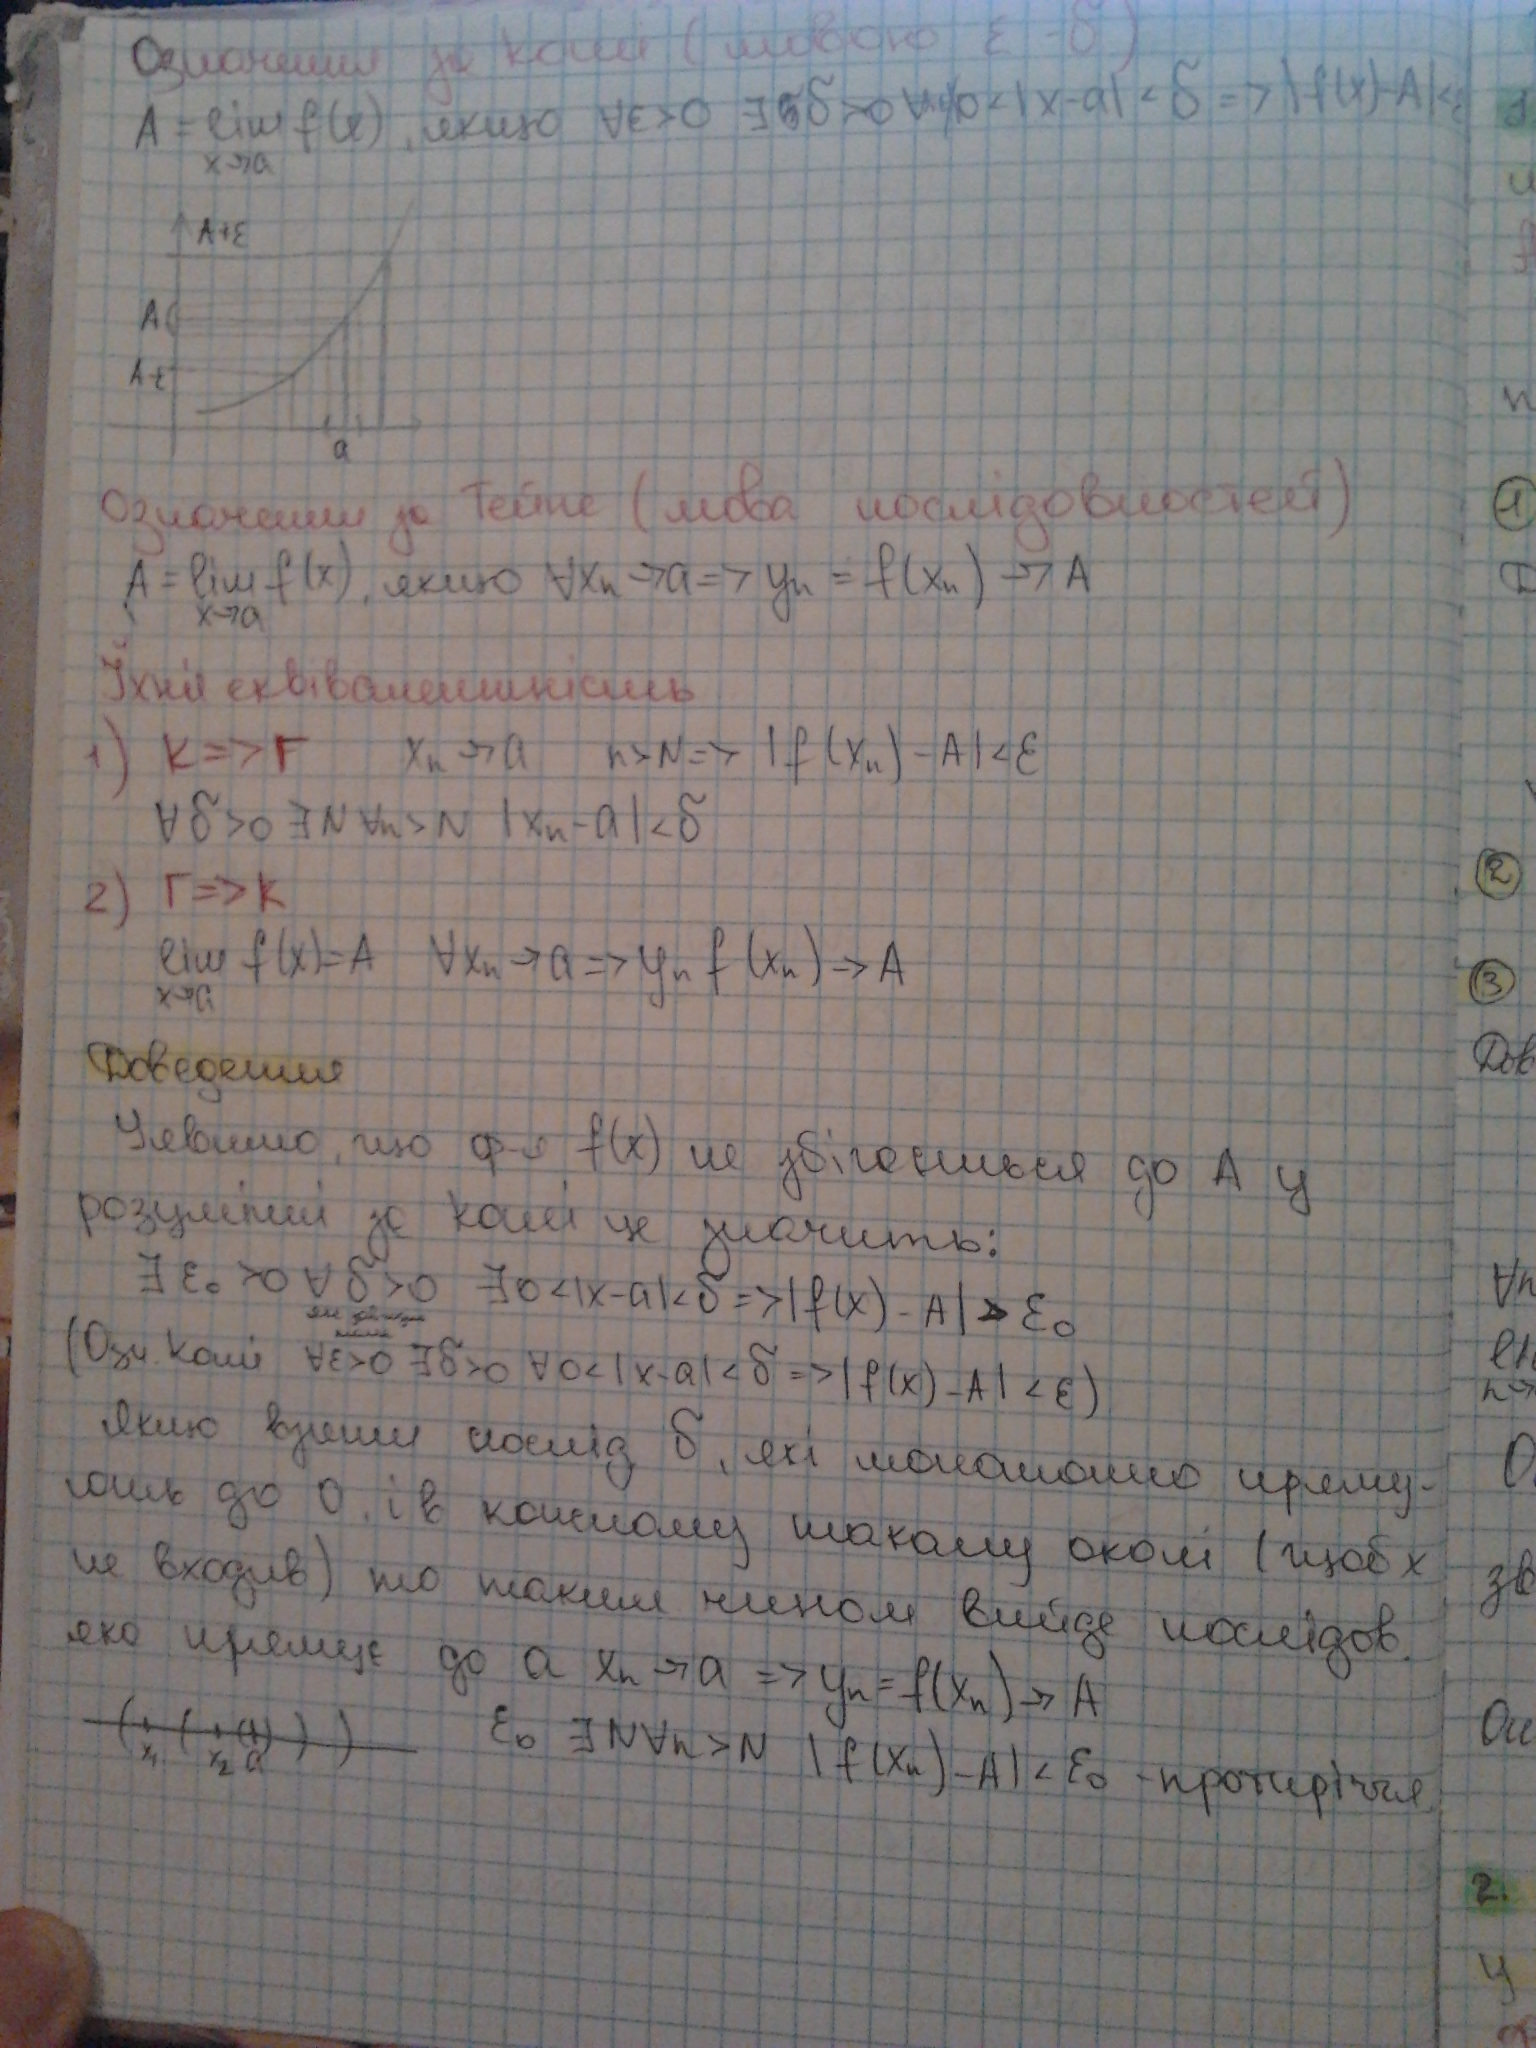 Означення за Коші (мовою ε-δ)
A = lim f(x), якщо ∀ε>0 ∃δ>0 ∀x 0<|x-a|<δ => |f(x)-A|<ε
x→a
A+ε
A
A-ε
a
Означення за Гейне (мова послідовностей)
A = lim f(x), якщо ∀xn→a => yn = f(xn) → A
x→a
Їхня еквівалентність
1) К=>Г xn→a n>N => |f(xn)-A|<ε
∀δ>0 ∃N ∀n>N |xn-a|<δ
2) Г=>К
lim f(x)=A ∀xn→a => yn f(xn) → A
x→a
Доведення
Уявимо, що ф-я f(x) не збігається до A у
розумінні за Коші це значить:
∃ε0>0 ∀δ>0 ∃0<|x-a|<δ => |f(x)-A|>ε0
(Озн. Коші ∀ε>0 ∃δ>0 ∀0<|x-a|<δ => |f(x)-A|<ε)
Якщо взяти послід δ, які монотонно пряму-
ють до 0, і в кожному такому околі (щоб x
не входив) то таким чином вийде послідов.
яка прямує до a xn→a => yn=f(xn)→A
x1 x2 a
ε0 ∃N∀n>N |f(xn)-A|<ε0 - протиріччя
1
2
3
Дов
∀n
зв
2.
у